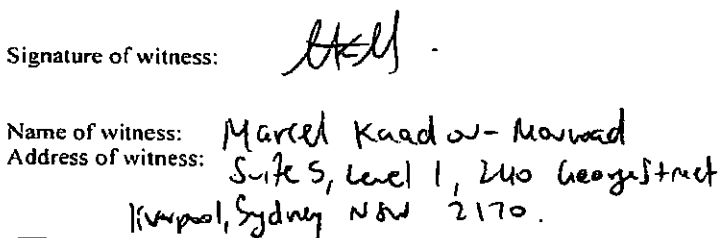 Signature of witness:
Name of witness: Marcel Kaador-Mouwad
Address of witness:
Suite 5, Level 1, 240 George Street
liverpool, Sydney NSW 2170.